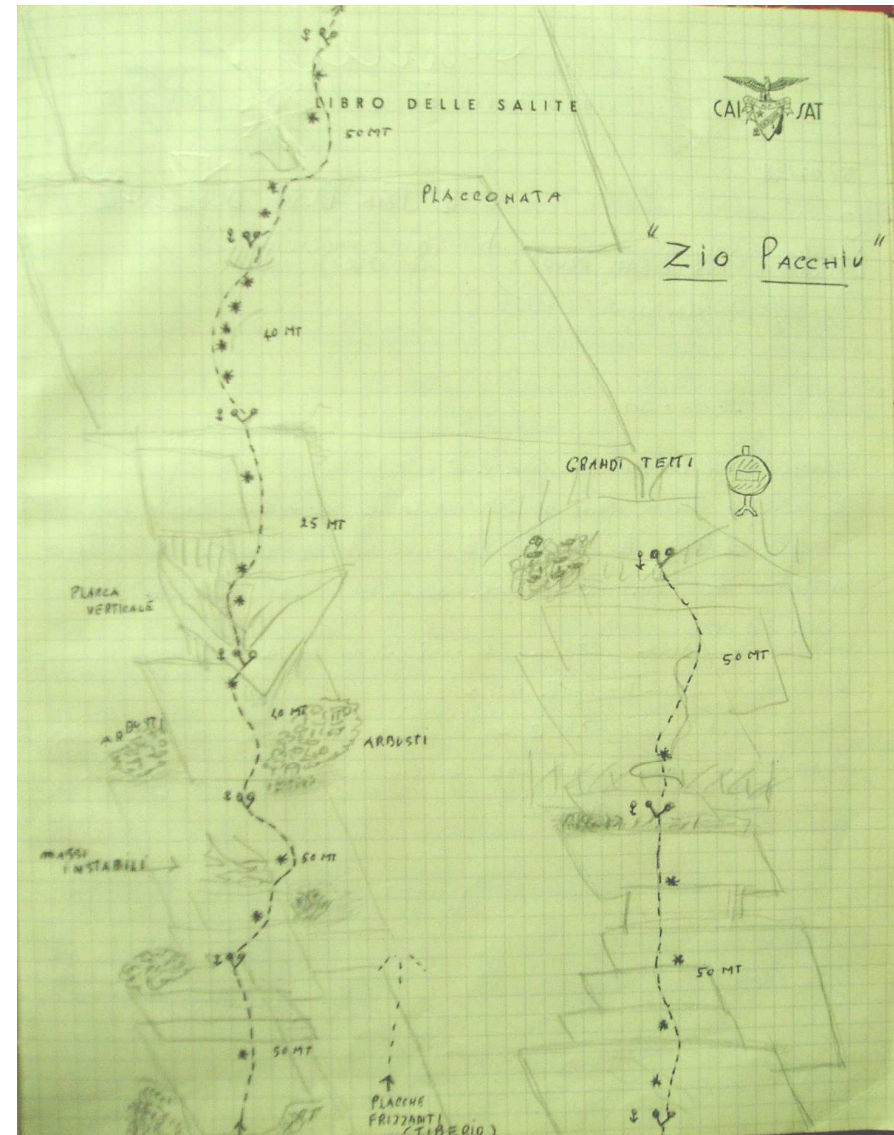 LIBRO DELLE SALITE
CAI SAT
50 MT
PLACCONATA
"Zio PACCHIU"
40 MT
GRANDI TETTI
25 MT
PLACCA
VERTICALE
50 MT
40 MT
ARBUSTI
ARBUSTI
MASSI
INSTABILI
50 MT
50 MT
50 MT
PLACCHE
FRIZZANTI
(TIBERIO)